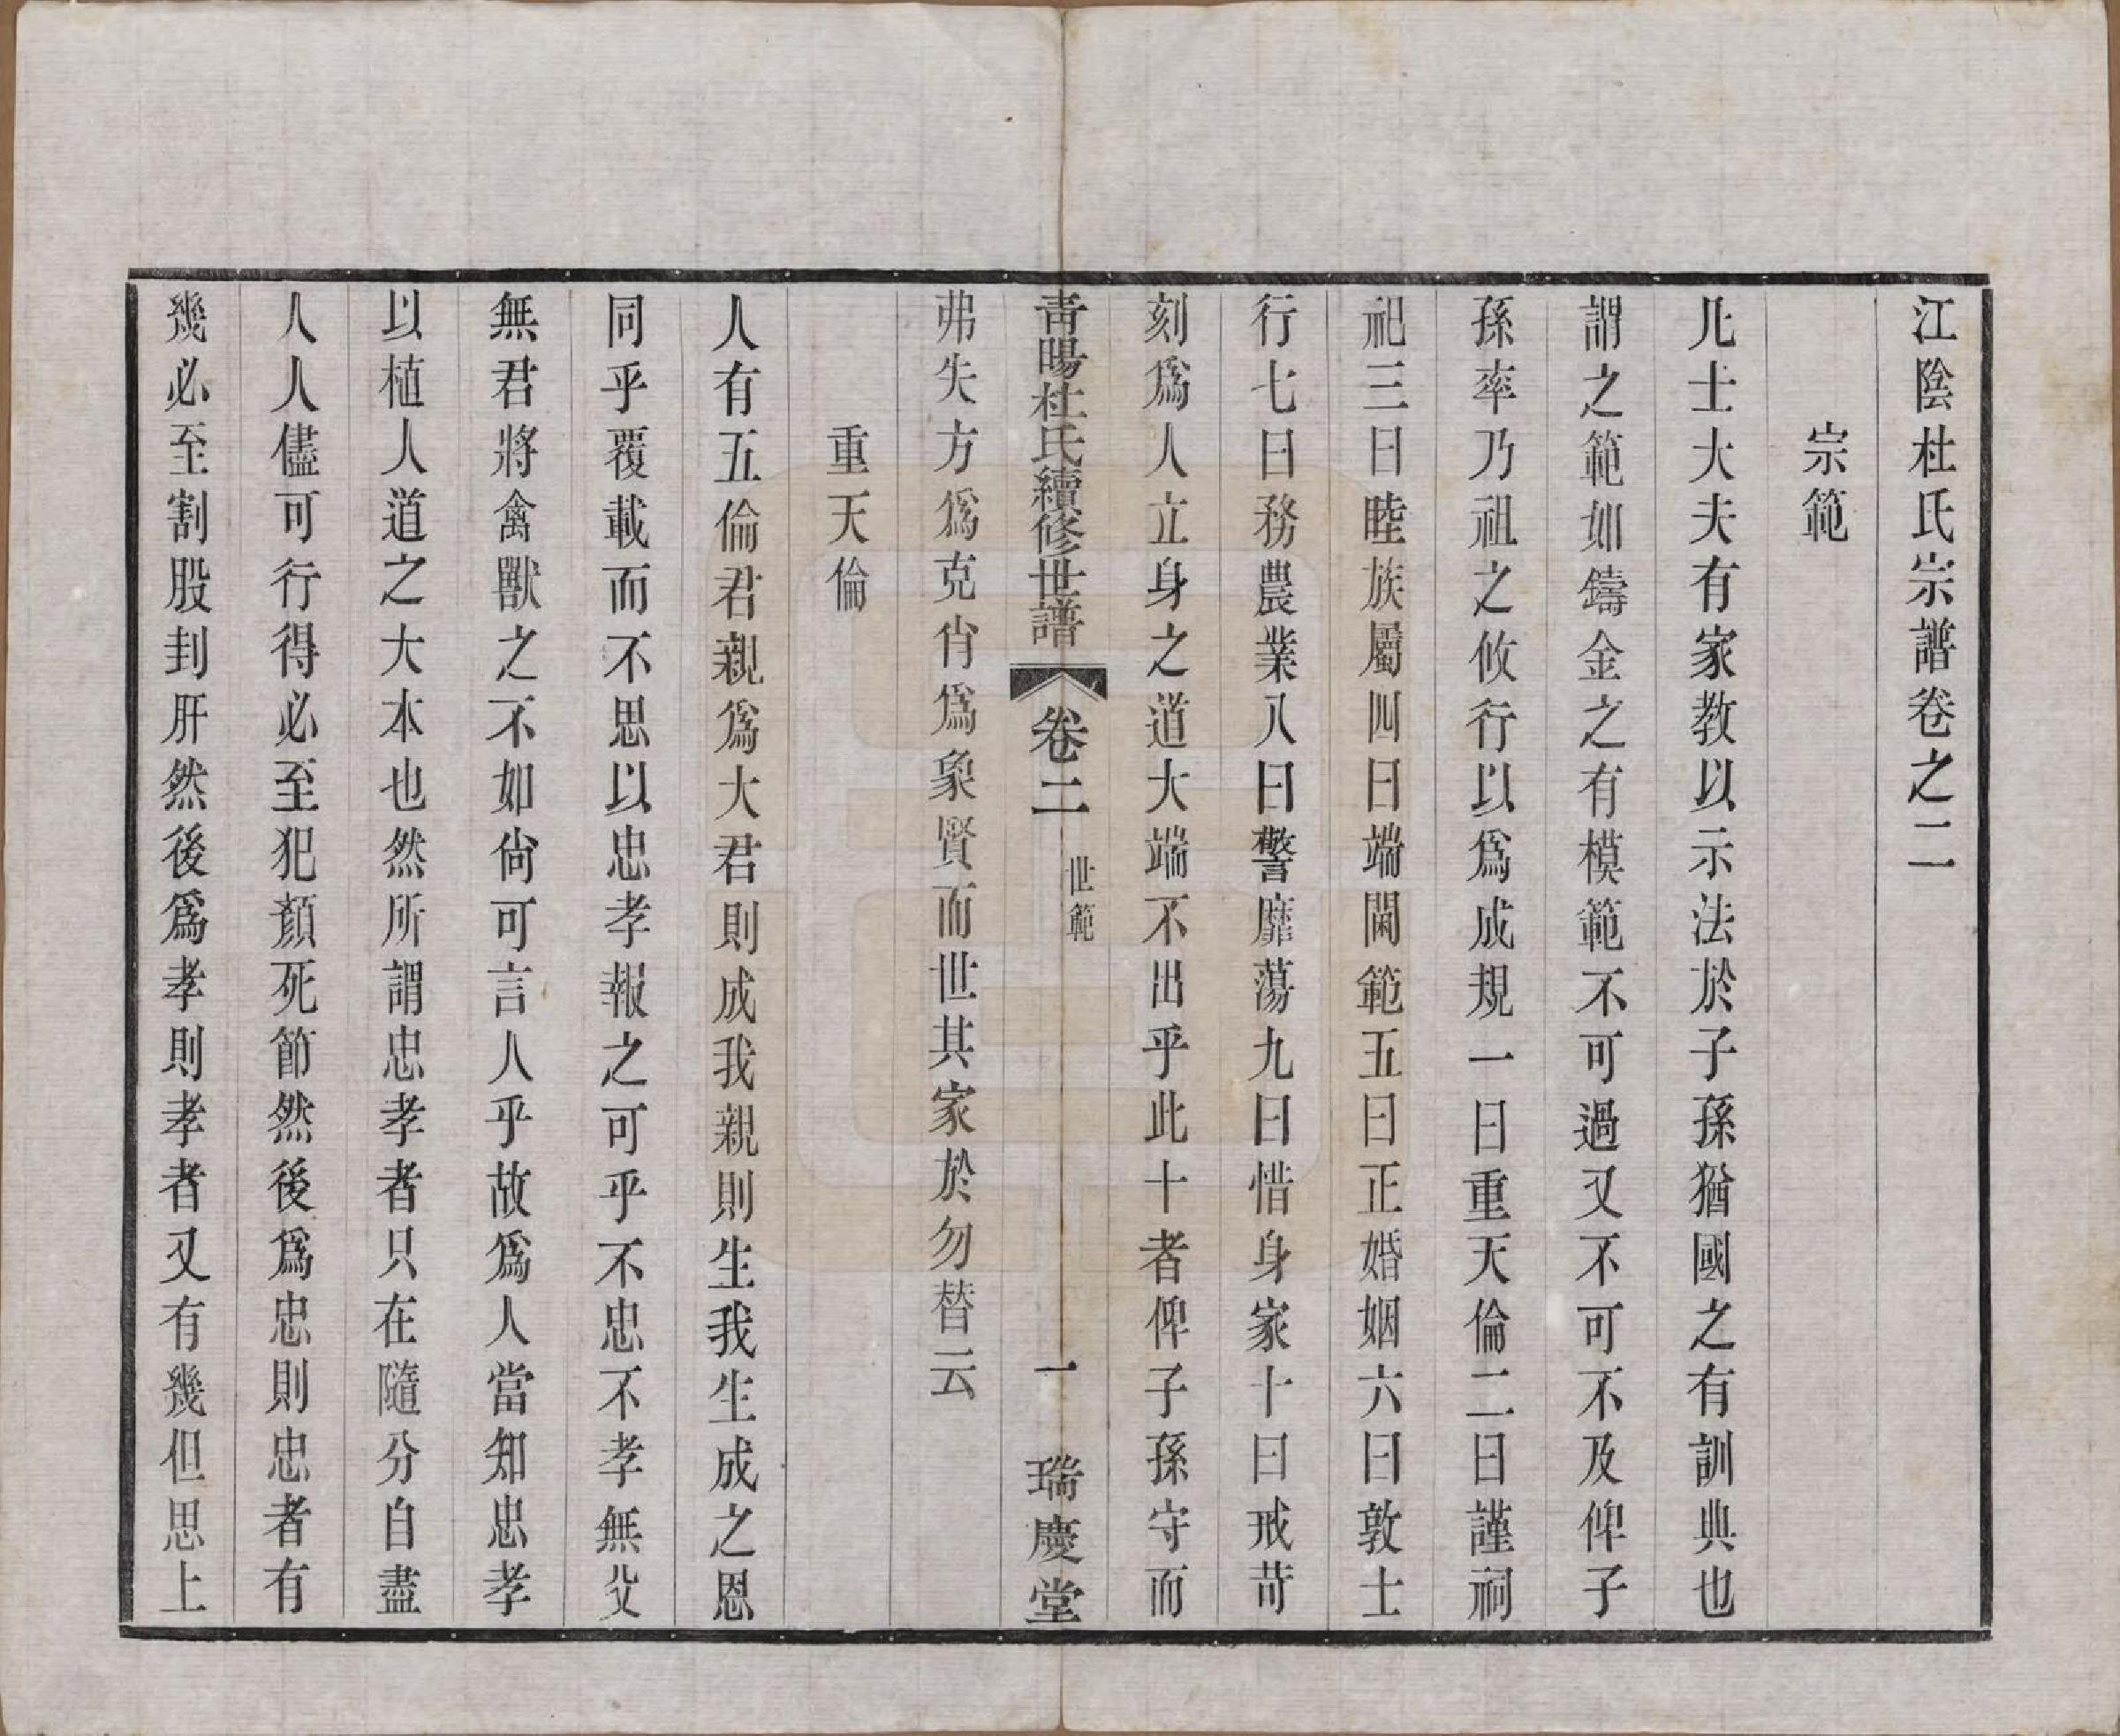 江陰杜氏宗譜卷之二
宗範
凡士大夫有家教以示法於子孫猶國之有訓典也
謂之範如鑄金之有模範不可過又不可不及俾子
孫率乃祖之攸行以爲成規一曰重天倫二曰謹祠
祀三曰睦族屬四曰端閫範五曰正婚姻六曰敦士
行七曰務農業八曰警靡蕩九曰惜身家十曰戒苛
刻爲人立身之道大端不出乎此十者俾子孫守而
青暘杜氏續修世譜
卷二
世範
一
瑞慶堂
弗失方爲克肖爲象賢而世其家於勿替云
重天倫
人有五倫君親爲大君則成我親則生我生成之恩
同乎覆載而不思以忠孝報之可乎不忠不孝無父
無君將禽獸之不如尙可言人乎故爲人當知忠孝
以植人道之大本也然所謂忠孝者只在隨分自盡
人人儘可行得必至犯顏死節然後爲忠則忠者有
幾必至割股刲肝然後爲孝則孝者又有幾但思上